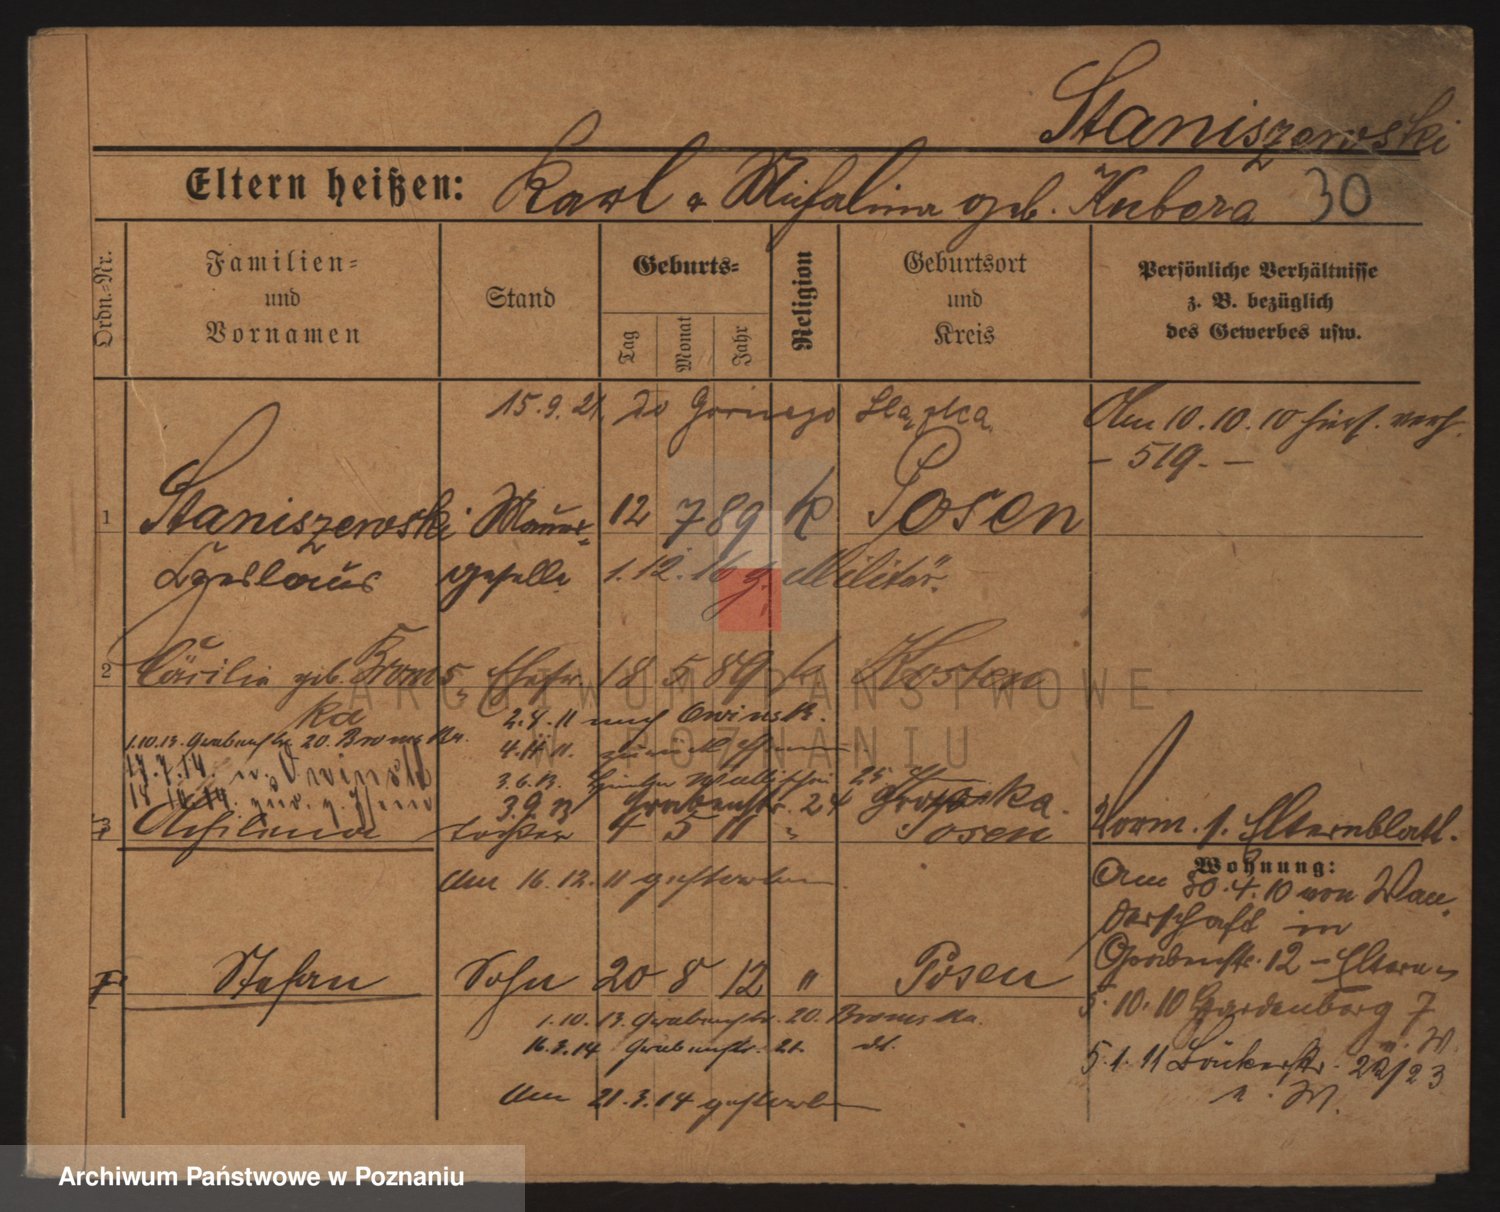 Staniszewski
Eltern heißen: Karl u Michalina geb. Kubera 30
Ordn.-Nr.
Familien-
und
Vornamen
Stand
Geburts-
Tag
Monat
Jahr
Religion
Geburtsort
und
Kreis
Persönliche Verhältnisse
z. B. bezüglich
des Gewerbes usw.
15.9.21. do Górnego Śląska.
Am 10.10.10 hier verh.
– 519. –
1 Staniszewski Maurer- 12 7 89 k Posen
Czeslaus geselle 1.12.16 z. Militär.
2 Cäcilie geb. Broms- Ehefr. 18 5 89 k Kosten
ka
2.8.11 nach Owinsk.
1.10.13. Grabenstr. 20. Bromska.
4.11.11. zurück
17.7.14. n. Owinsk
3.6.13. Hinter Wallischei 25
18.10.14. zur. v.
3.9.13 Grabenstr. 24
3 Tochter 4 5 11 " Posen
Vorm. s. Elternblatt.
Am 16.12.11 gestorben.
Wohnung:
Am 30.4.10 von Wan-
derschaft in
Grabenstr. 12 – Eltern –
Stefan Sohn 20 8 12 " Posen
5.10.10 Gardenberg 7
n. W.
1.10.13. Grabenstr. 20. Bromska.
16.3.14 Grabenstr. 21. ds.
5.1.11 Bäckerstr. 22/23
n. W.
Am 21.3.14 gestorben
ARCHIWUM PAŃSTWOWE
W POZNANIU
Archiwum Państwowe w Poznaniu